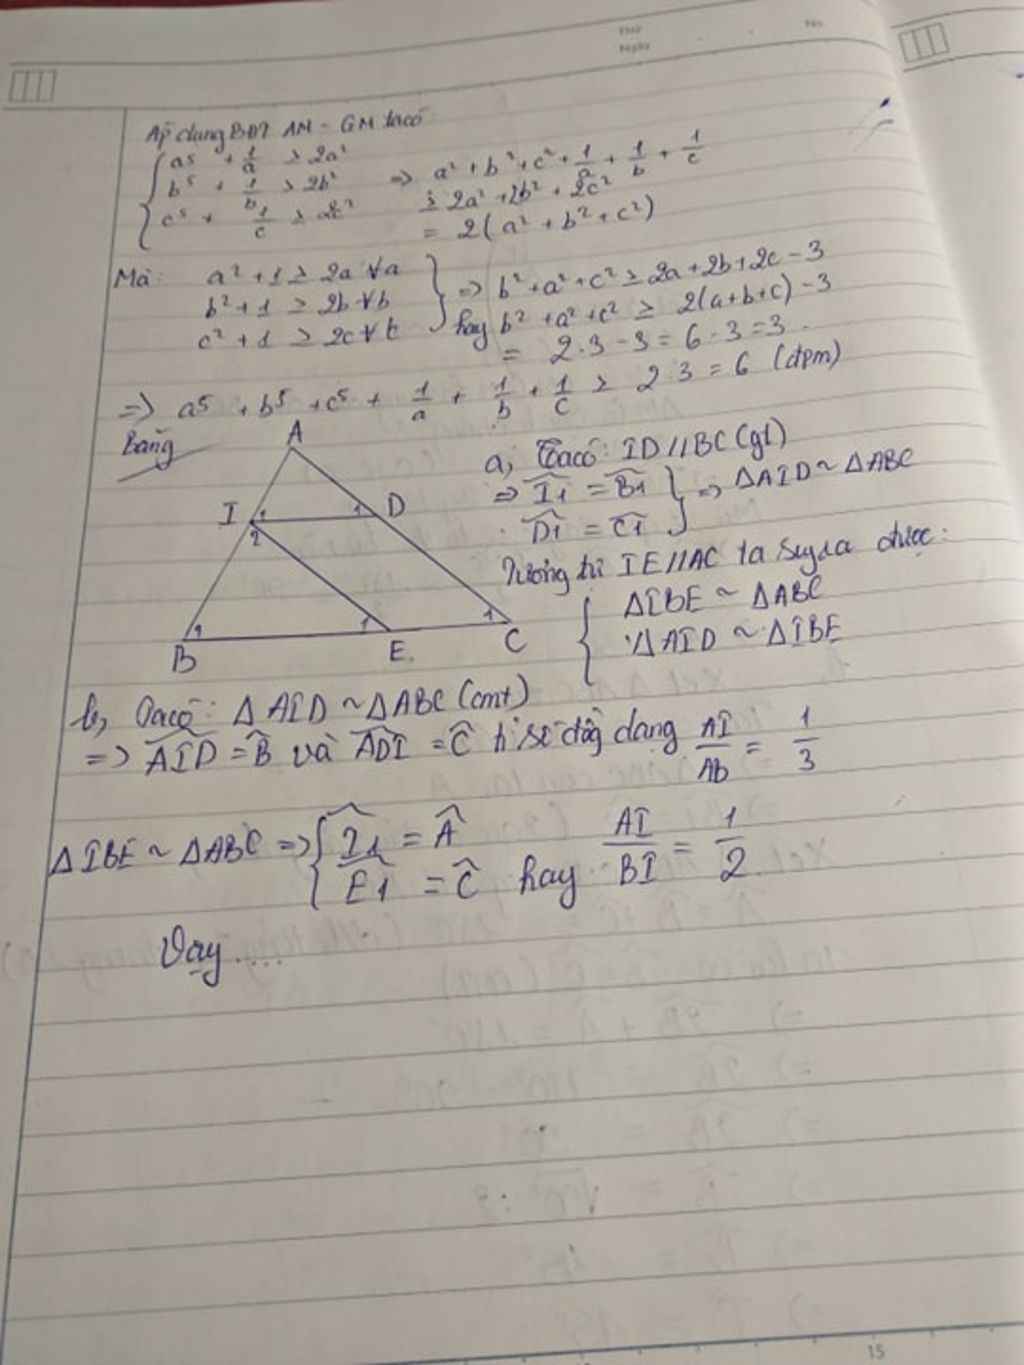 Thứ
Ngày
No.
Áp dụng BĐT AM - GM ta có
a⁵ + 1/a ≥ 2a²
b⁵ + 1/b ≥ 2b² => a² + b² + c² + 1/a + 1/b + 1/c
c⁵ + 1/c ≥ 2c² ≥ 2a² + 2b² + 2c²
= 2(a² + b² + c²)
Mà: a² + 1 ≥ 2a ∀a
b² + 1 ≥ 2b ∀b => b² + a² + c² ≥ 2a + 2b + 2c - 3
c² + 1 ≥ 2c ∀c hay b² + a² + c² ≥ 2(a+b+c) - 3
= 2.3 - 3 = 6 - 3 = 3.
=> a⁵ + b⁵ + c⁵ + 1/a + 1/b + 1/c ≥ 2.3 = 6 (đpm)
Bằng
A
I 1 2
1 D
B 1
1 E
1 C
a, Ta có: ID // BC (gt)
=> Î1 = B̂1
D̂1 = Ĉ1 => ΔAID ~ ΔABC
Tương tự IE // AC ta suy ra được:
ΔIBE ~ ΔABC
ΔAID ~ ΔIBE
b, Ta có: ΔAID ~ ΔABC (cmt)
=> AID = B̂ và ADI = Ĉ tỉ số đồng dạng AI/Ab = 1/3
ΔIBE ~ ΔABC => { Î1 = Â
Ê1 = Ĉ hay AI/BI = 1/2
Vậy....
15